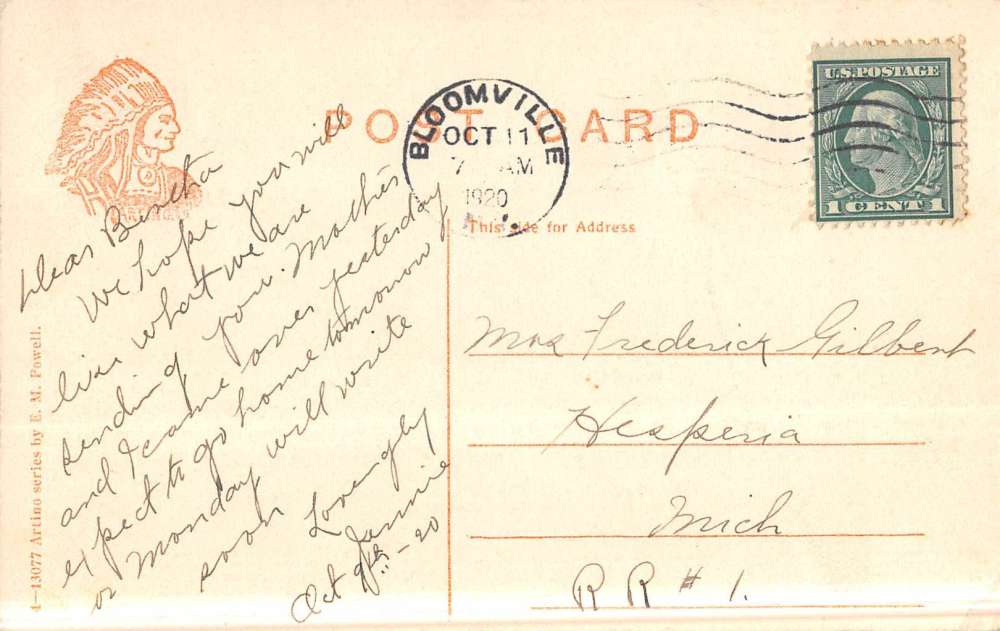 POST CARD
BLOOMVILLE
OCT 11
7 AM
1920
U.S. POSTAGE
1 CENT 1
This side for Address
Dear Bertha
We hope you will
like what we are
sending you. Mother
and I came over yesterday
expect to go home tomorrow
or Monday will write
soon Lovingly
Jannie
Oct 9th - 20
Mrs Frederick Gilbert
Hesperia
Mich
R R # 1.
4-13077 Artino series by E. M. Powell.